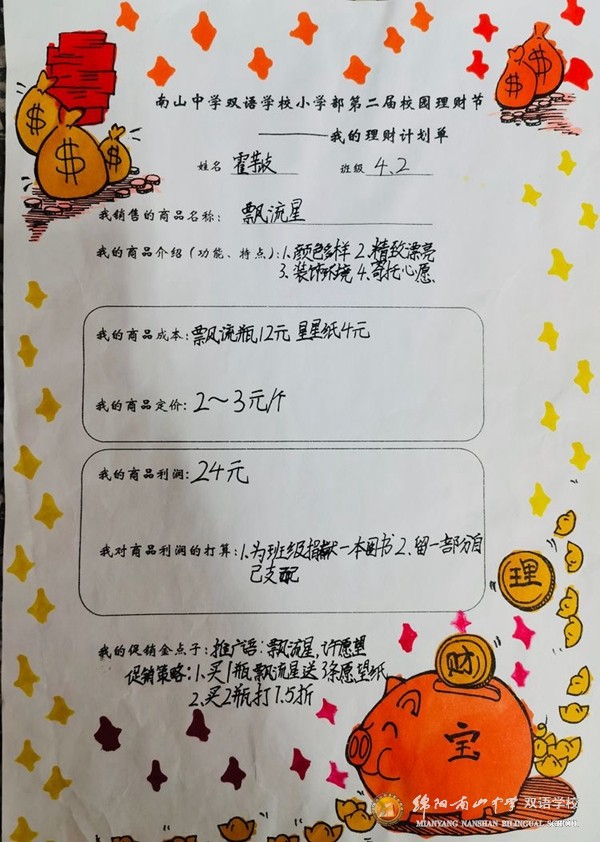 南山中学双语学校小学部第二届校园理财节
——我的理财计划单
姓名 霍芋岐 班级 4.2
我销售的商品名称: 飘流星
我的商品介绍(功能、特点): 1.颜色多样 2.精致漂亮
3.装饰环境 4.寄托心愿
我的商品成本: 飘流瓶12元 星星纸4元
我的商品定价: 2~3元/个
我的商品利润: 24元
我对商品利润的打算: 1.为班级捐献一本图书 2.留一部分自
己支配
我的促销金点子: 推广语: 飘流星,许愿望
促销策略: 1.买1瓶飘流星送3条愿望纸
2.买2瓶打7.5折
理
财
宝
绵阳南山中学 双语学校
MIANYANG NANSHAN BILINGUAL SCHOOL